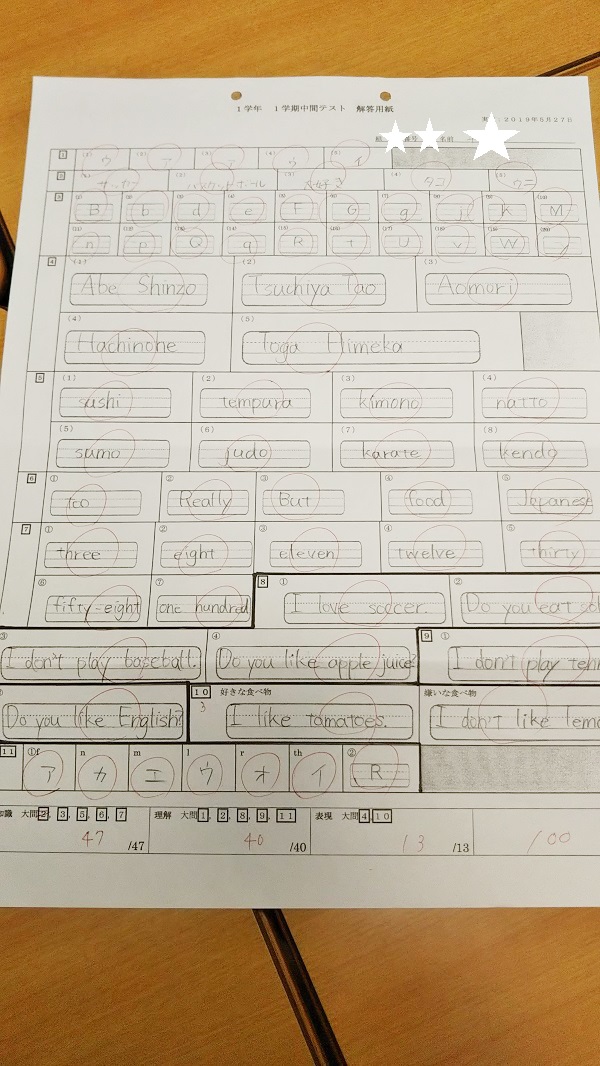 1学年 1学期中間テスト 解答用紙
2019年5月27日
番号 名前
1 (1) ウ (2) ア (3) (4) (5) イ
2 (1) サッカー (2) バスケットボール (3) 大好き (4) タコ (5) ウニ
3 (1) B (2) b (3) d (4) e (5) F (6) G (7) g (8) j (9) k (10) M
(11) n (12) p (13) Q (14) q (15) R (16) t (17) U (18) v (19) W (20) y
4 (1) Abe Shinzo (2) Tsuchiya Tao (3) Aomori
(4) Hachinohe (5) Toga Himeka
5 (1) sushi (2) tempura (3) kimono (4) natto
(5) sumo (6) judo (7) karate (8) kendo
6 ① too ② Really ③ But ④ food ⑤ Japanese
7 ① three ② eight ③ eleven ④ twelve ⑤ thirty
⑥ fifty-eight ⑦ one hundred 8 ① I love soccer. ② Do you eat
③ I don't play baseball. ④ Do you like apple juice? 9 ① I don't play
Do you like English? 10 3 好きな食べ物 I like tomatoes. 嫌いな食べ物 I don't like
11 ①f ア n カ m エ l ウ r オ th イ ② R
知識 大問2, 3, 5, 6, 7 理解 大問1, 2, 8, 9, 11 表現 大問4, 10
47 /47 40 /40 13 /13 100